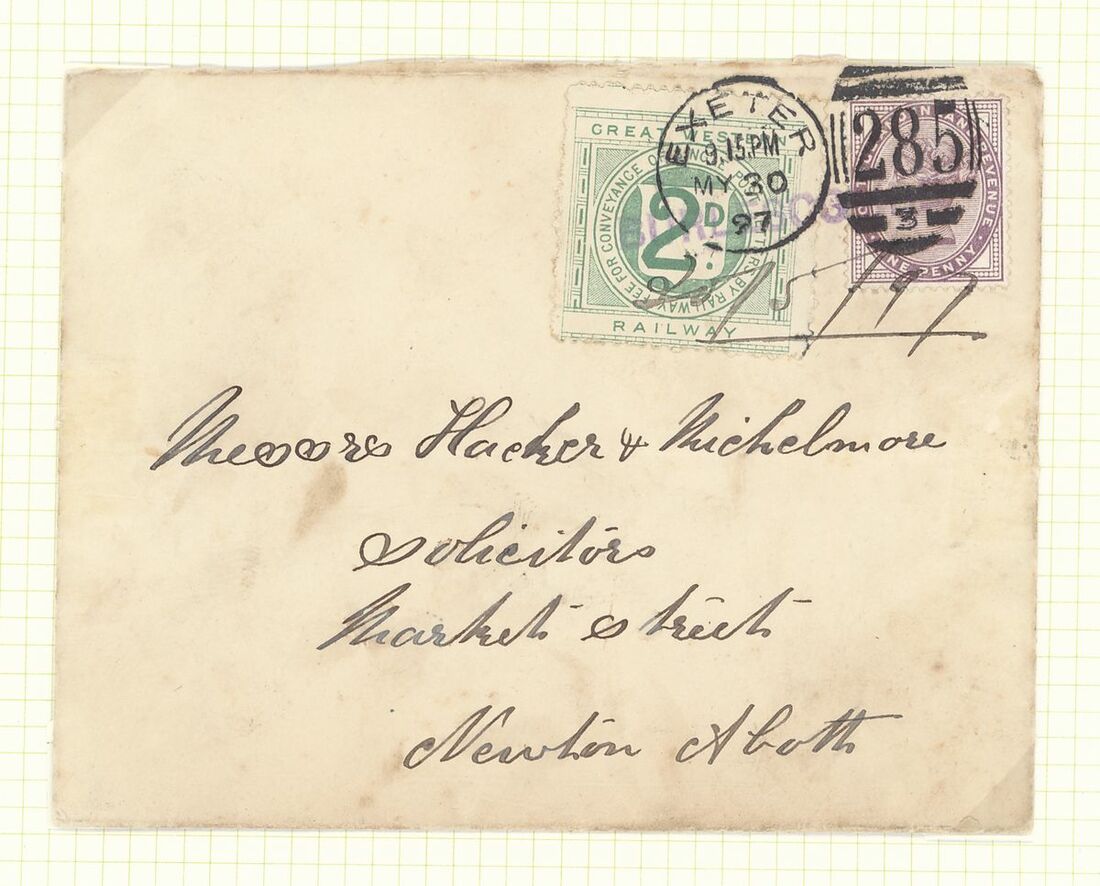 GREAT WESTERN
FEE FOR CONVEYANCE OF SINGLE POST LETTERS BY RAILWAY
2D.
RAILWAY
EXETER
9.15.PM
MY 30
97
285
3
REVENUE
ONE PENNY
30/5/97
Messrs Hacker & Michelmore
Solicitors
Market Street
Newton Abott